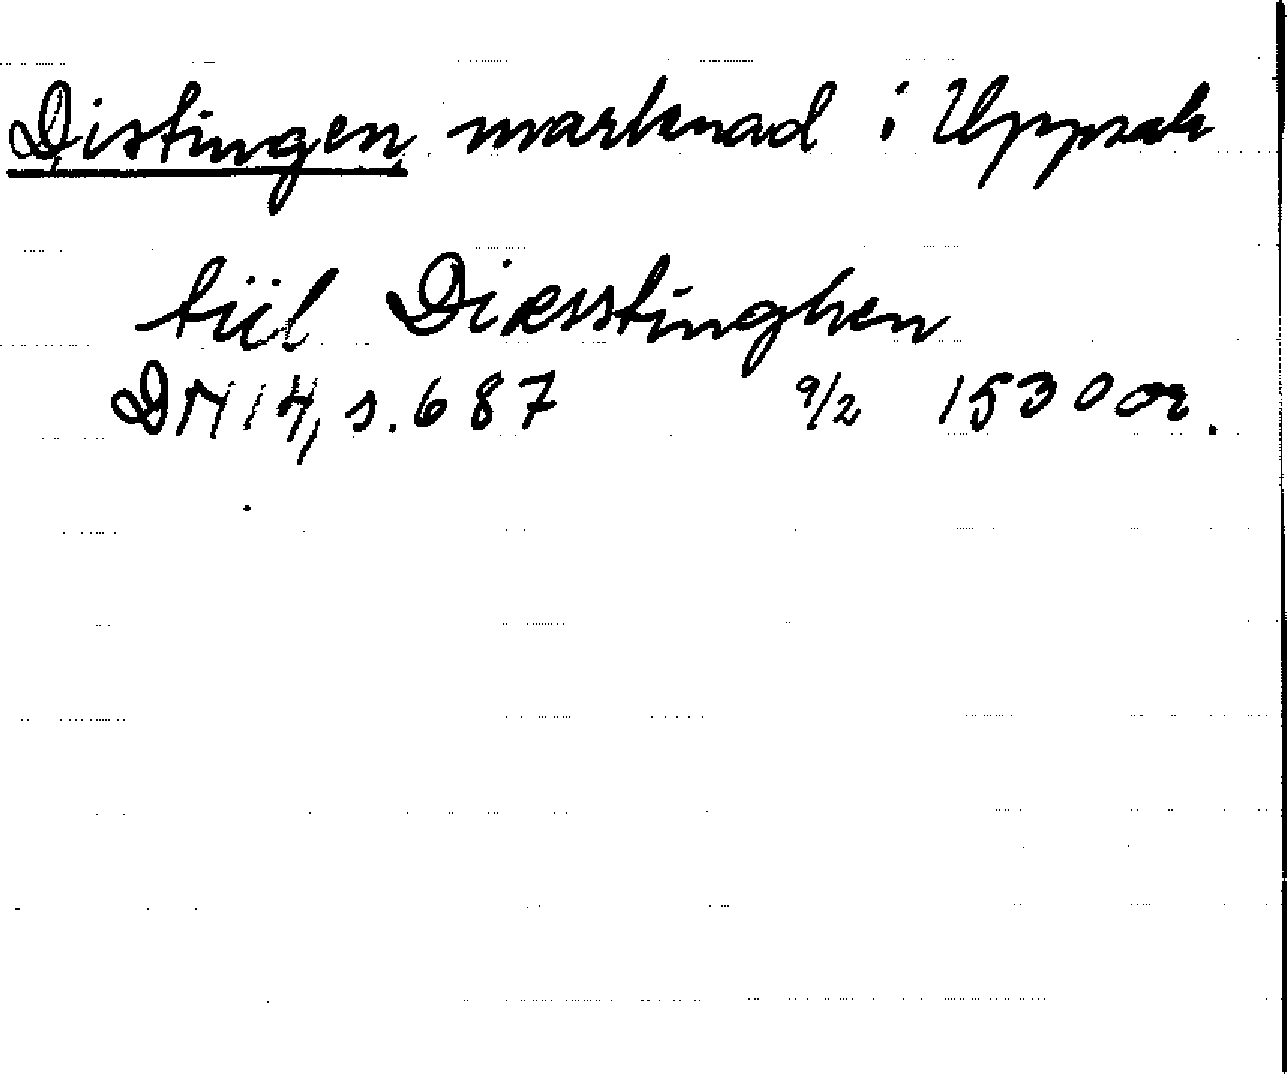 Distingen marknad i Uppsala
tiil Diæsstinghen
DN 14, s. 687 9/2 1530 or.